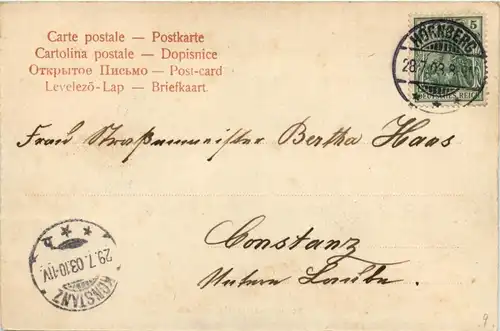 Carte postale — Postkarte
Cartolina postale — Dopisnice
Открытое Письмо — Post-card
Levelező-Lap — Briefkaart.
HORNBERG
28.7.03.
5
DEUTSCHES REICH
Frau Straßenmeister Bertha Haas
Constanz
Untere Laube.
29.7.03.10-11V
KONSTANZ
9